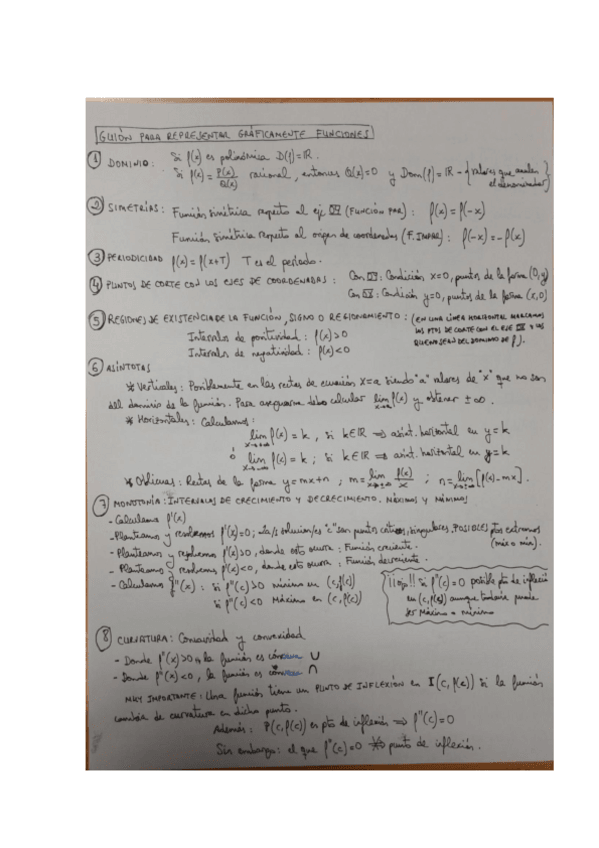 GUIÓN PARA REPRESENTAR GRÁFICAMENTE FUNCIONES
① DOMINIO: Si f(x) es polinómica D(f)=ℝ.
Si f(x)=P(x)/Q(x) racional, entonces Q(x)=0 y Dom(f)=ℝ-{valores que anulan el denominador}
② SIMETRÍAS: Función simétrica respecto al eje OY (FUNCIÓN PAR): f(x)=f(-x)
Función simétrica respecto al origen de coordenadas (F. IMPAR): f(-x)=-f(x)
③ PERIODICIDAD f(x)=f(x+T) T es el periodo.
④ PUNTOS DE CORTE CON LOS EJES DE COORDENADAS: Con OY: Condición x=0, puntos de la forma (0,y)
Con OX: Condición y=0, puntos de la forma (x,0)
⑤ REGIONES DE EXISTENCIA DE LA FUNCIÓN, SIGNO O REGIONAMIENTO: (EN UNA LÍNEA HORIZONTAL MARCAMOS
LOS PTOS DE CORTE CON EL EJE OX Y LOS
QUE NO SEAN DEL DOMINIO DE f).
Intervalos de positividad: f(x)>0
Intervalos de negatividad: f(x)<0
⑥ ASÍNTOTAS
* Verticales: Posiblemente en las rectas de ecuación x=a siendo "a" valores de "x" que no son
del dominio de la función. Para asegurarme debo calcular lim x→a f(x) y obtener ±∞.
* Horizontales: Calculamos:
lim x→+∞ f(x)=k, si k∈ℝ ⟹ asínt. horizontal en y=k
ó lim x→-∞ f(x)=k; si k∈ℝ ⟹ asínt. horizontal en y=k
* Oblicuas: Rectas de la forma y=mx+n; m=lim x→±∞ f(x)/x; n=lim x→±∞ [f(x)-mx].
⑦ MONOTONÍA: INTERVALOS DE CRECIMIENTO Y DECRECIMIENTO. MÁXIMOS Y MÍNIMOS
- Calculamos f'(x)
- Planteamos y resolvemos f'(x)=0; la/s solución/es "c" son puntos críticos, singulares, POSIBLES ptos extremos
(máx o mín).
- Planteamos y resolvemos f'(x)>0, donde esto ocurra: Función creciente.
- Planteamos y resolvemos f'(x)<0, donde esto ocurra: Función decreciente.
- Calculamos f''(x): si f''(c)>0 mínimo en (c,f(c))
si f''(c)<0 Máximo en (c,f(c))
¡¡¡Ojo!! Si f''(c)=0 posible pto de inflexión
en (c,f(c)) aunque también puede
ser Máximo o mínimo
⑧ CURVATURA: Concavidad y convexidad
- Donde f''(x)>0, la función es ∪
- Donde f''(x)<0, la función es ∩
MUY IMPORTANTE: Una función tiene un PUNTO DE INFLEXIÓN en I(c,f(c)) si la función
cambia de curvatura en dicho punto.
Además: P(c,f(c)) es pto de inflexión ⟹ f''(c)=0
Sin embargo: el que f''(c)=0 ⇏ punto de inflexión.